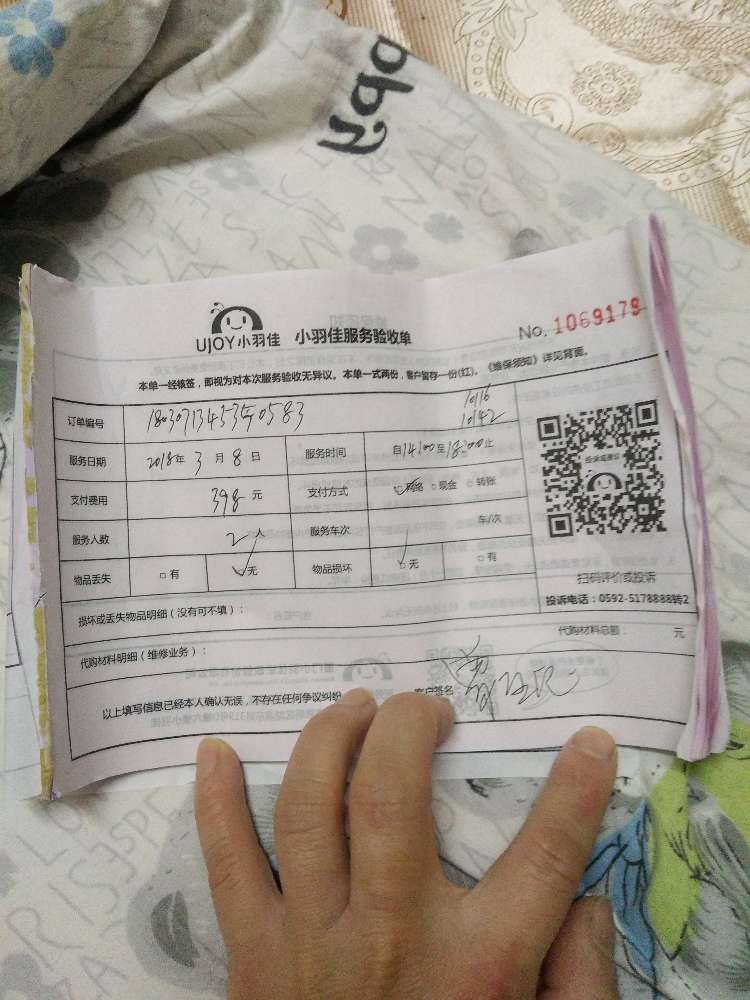 UJOY小羽佳 小羽佳服务验收单 No. 1069179
本单一经核签，即视为对本次服务验收无异议。本单一式两份，客户留存一份(红)。《维保须知》详见背面。
订单编号
10116
10142
服务日期 2018年 3 月 8 日 服务时间 自14:00至18:00止
支付费用 398 元 支付方式 网络 现金 转账
服务人数 2 人 服务车次 车/次
物品丢失 有 无 物品损坏 无 有
扫码评价或投诉
投诉电话：0592-5178888转2
损坏或丢失物品明细（没有可不填）：
代购材料明细（维修业务）： 代购材料总额： 元
以上填写信息已经本人确认无误，不存在任何争议纠纷 客户签名：